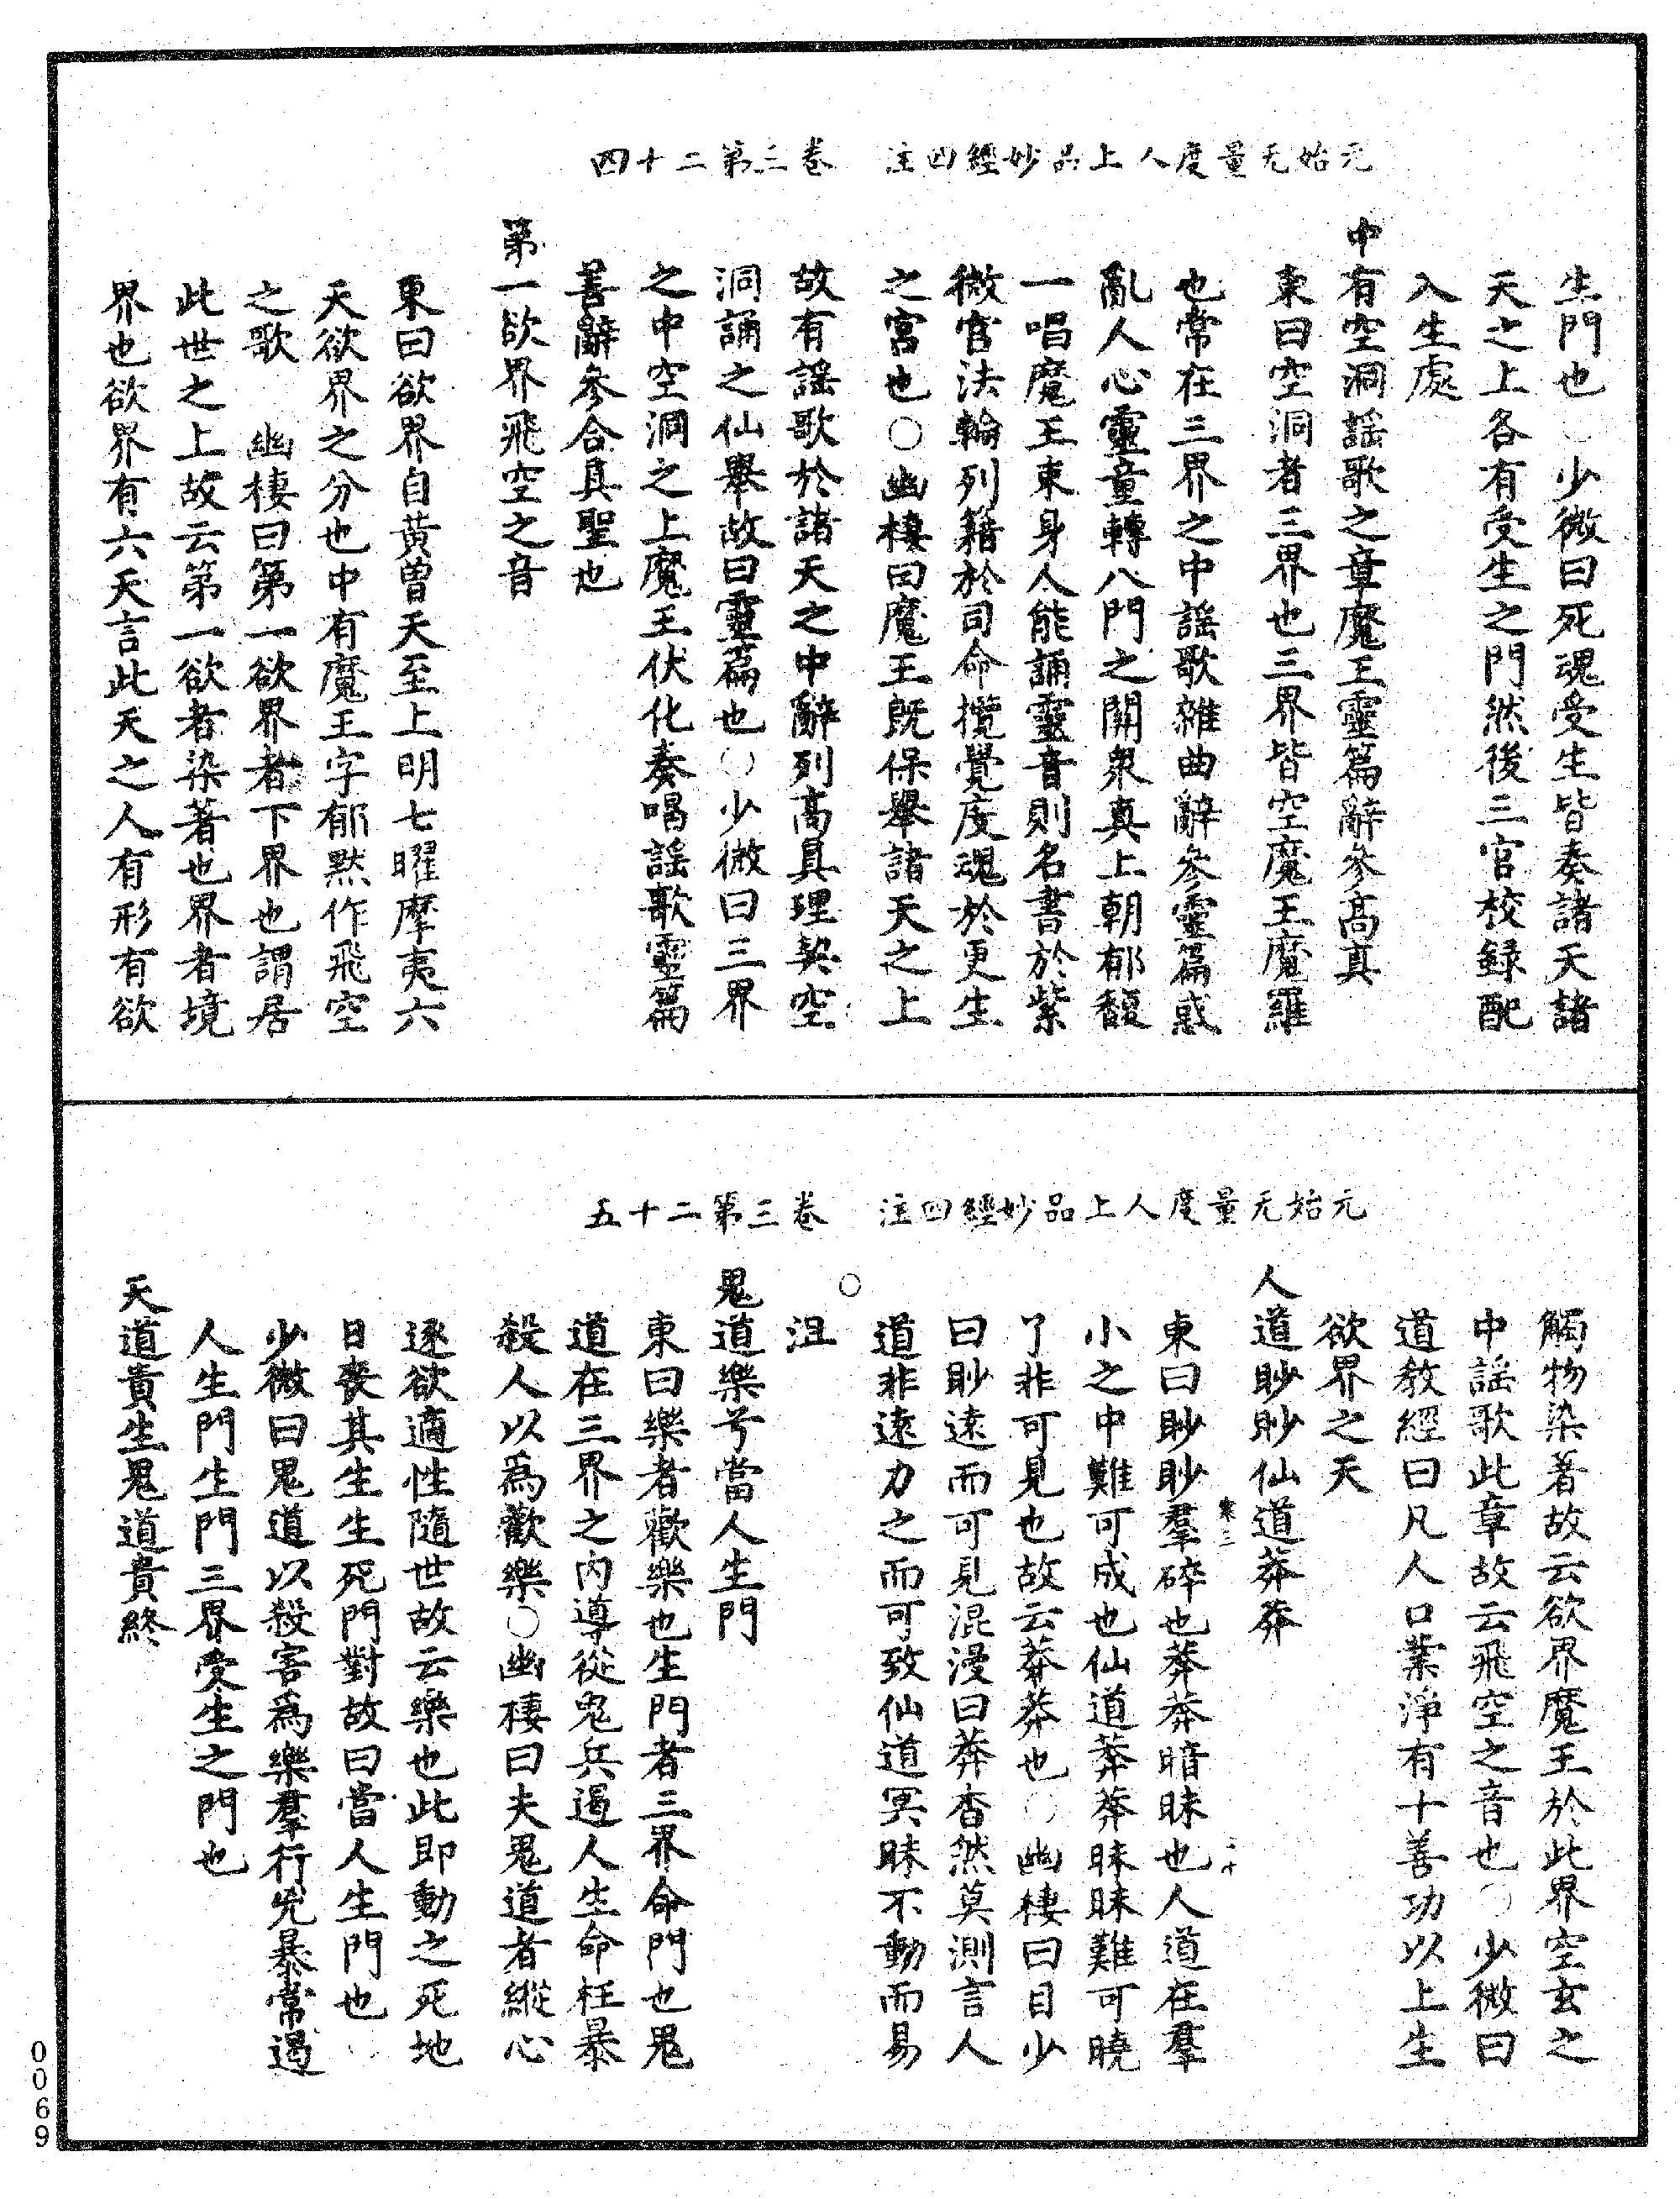 元始无量度人上品妙經四注　卷三第二十四
生門也○少微曰死魂受生皆奏諸天諸
天之上各有受生之門然後三官校録配
入生處
中有空洞謠歌之章魔王靈篇辭參高真
東曰空洞者三界也三界皆空魔王魔羅
也常在三界之中謠歌雜曲辭參靈篇惑
亂人心靈童轉八門之關衆真上朝郁馥
一唱魔王束身人能誦靈音則名書於紫
微宮法輪列籍於司命攬覺度魂於更生
之宮也○幽棲曰魔王既保舉諸天之上
故有謠歌於諸天之中辭列高真理契空
洞誦之仙舉故曰靈篇也○少微曰三界
之中空洞之上魔王伏化奏唱謠歌靈篇
善辭參合真聖也
第一欲界飛空之音
東曰欲界自黃曾天至上明七曜摩夷六
天欲界之分也中有魔王字郁黙作飛空
之歌　幽棲曰第一欲界者下界也謂居
此世之上故云第一欲者染著也界者境
界也欲界有六天言此天之人有形有欲
元始无量度人上品妙經四注　卷三第二十五
觸物染著故云欲界魔王於此界空玄之
中謠歌此章故云飛空之音也○少微曰
道教經曰凡人口業淨有十善功以上生
欲界之天
人道眇眇仙道莽莽
東曰眇眇羣碎也莽莽暗昧也人道在羣
小之中難可成也仙道莽莽昧昧難可曉
了非可見也故云莽莽也○幽棲曰目少
曰眇遠而可見混漫曰莽杳然莫測言人
道非遠力之而可致仙道冥昧不動而易
沮
○
鬼道樂兮當人生門
東曰樂者歡樂也生門者三界命門也鬼
道在三界之內導從鬼兵遏人生命枉暴
殺人以爲歡樂○幽棲曰夫鬼道者縱心
逐欲適性隨世故云樂也此即動之死地
日喪其生生死門對故曰當人生門也○
少微曰鬼道以殺害爲樂羣行兇暴常遏
人生門生門三界受生之門也
天道貴生鬼道貴終
0069